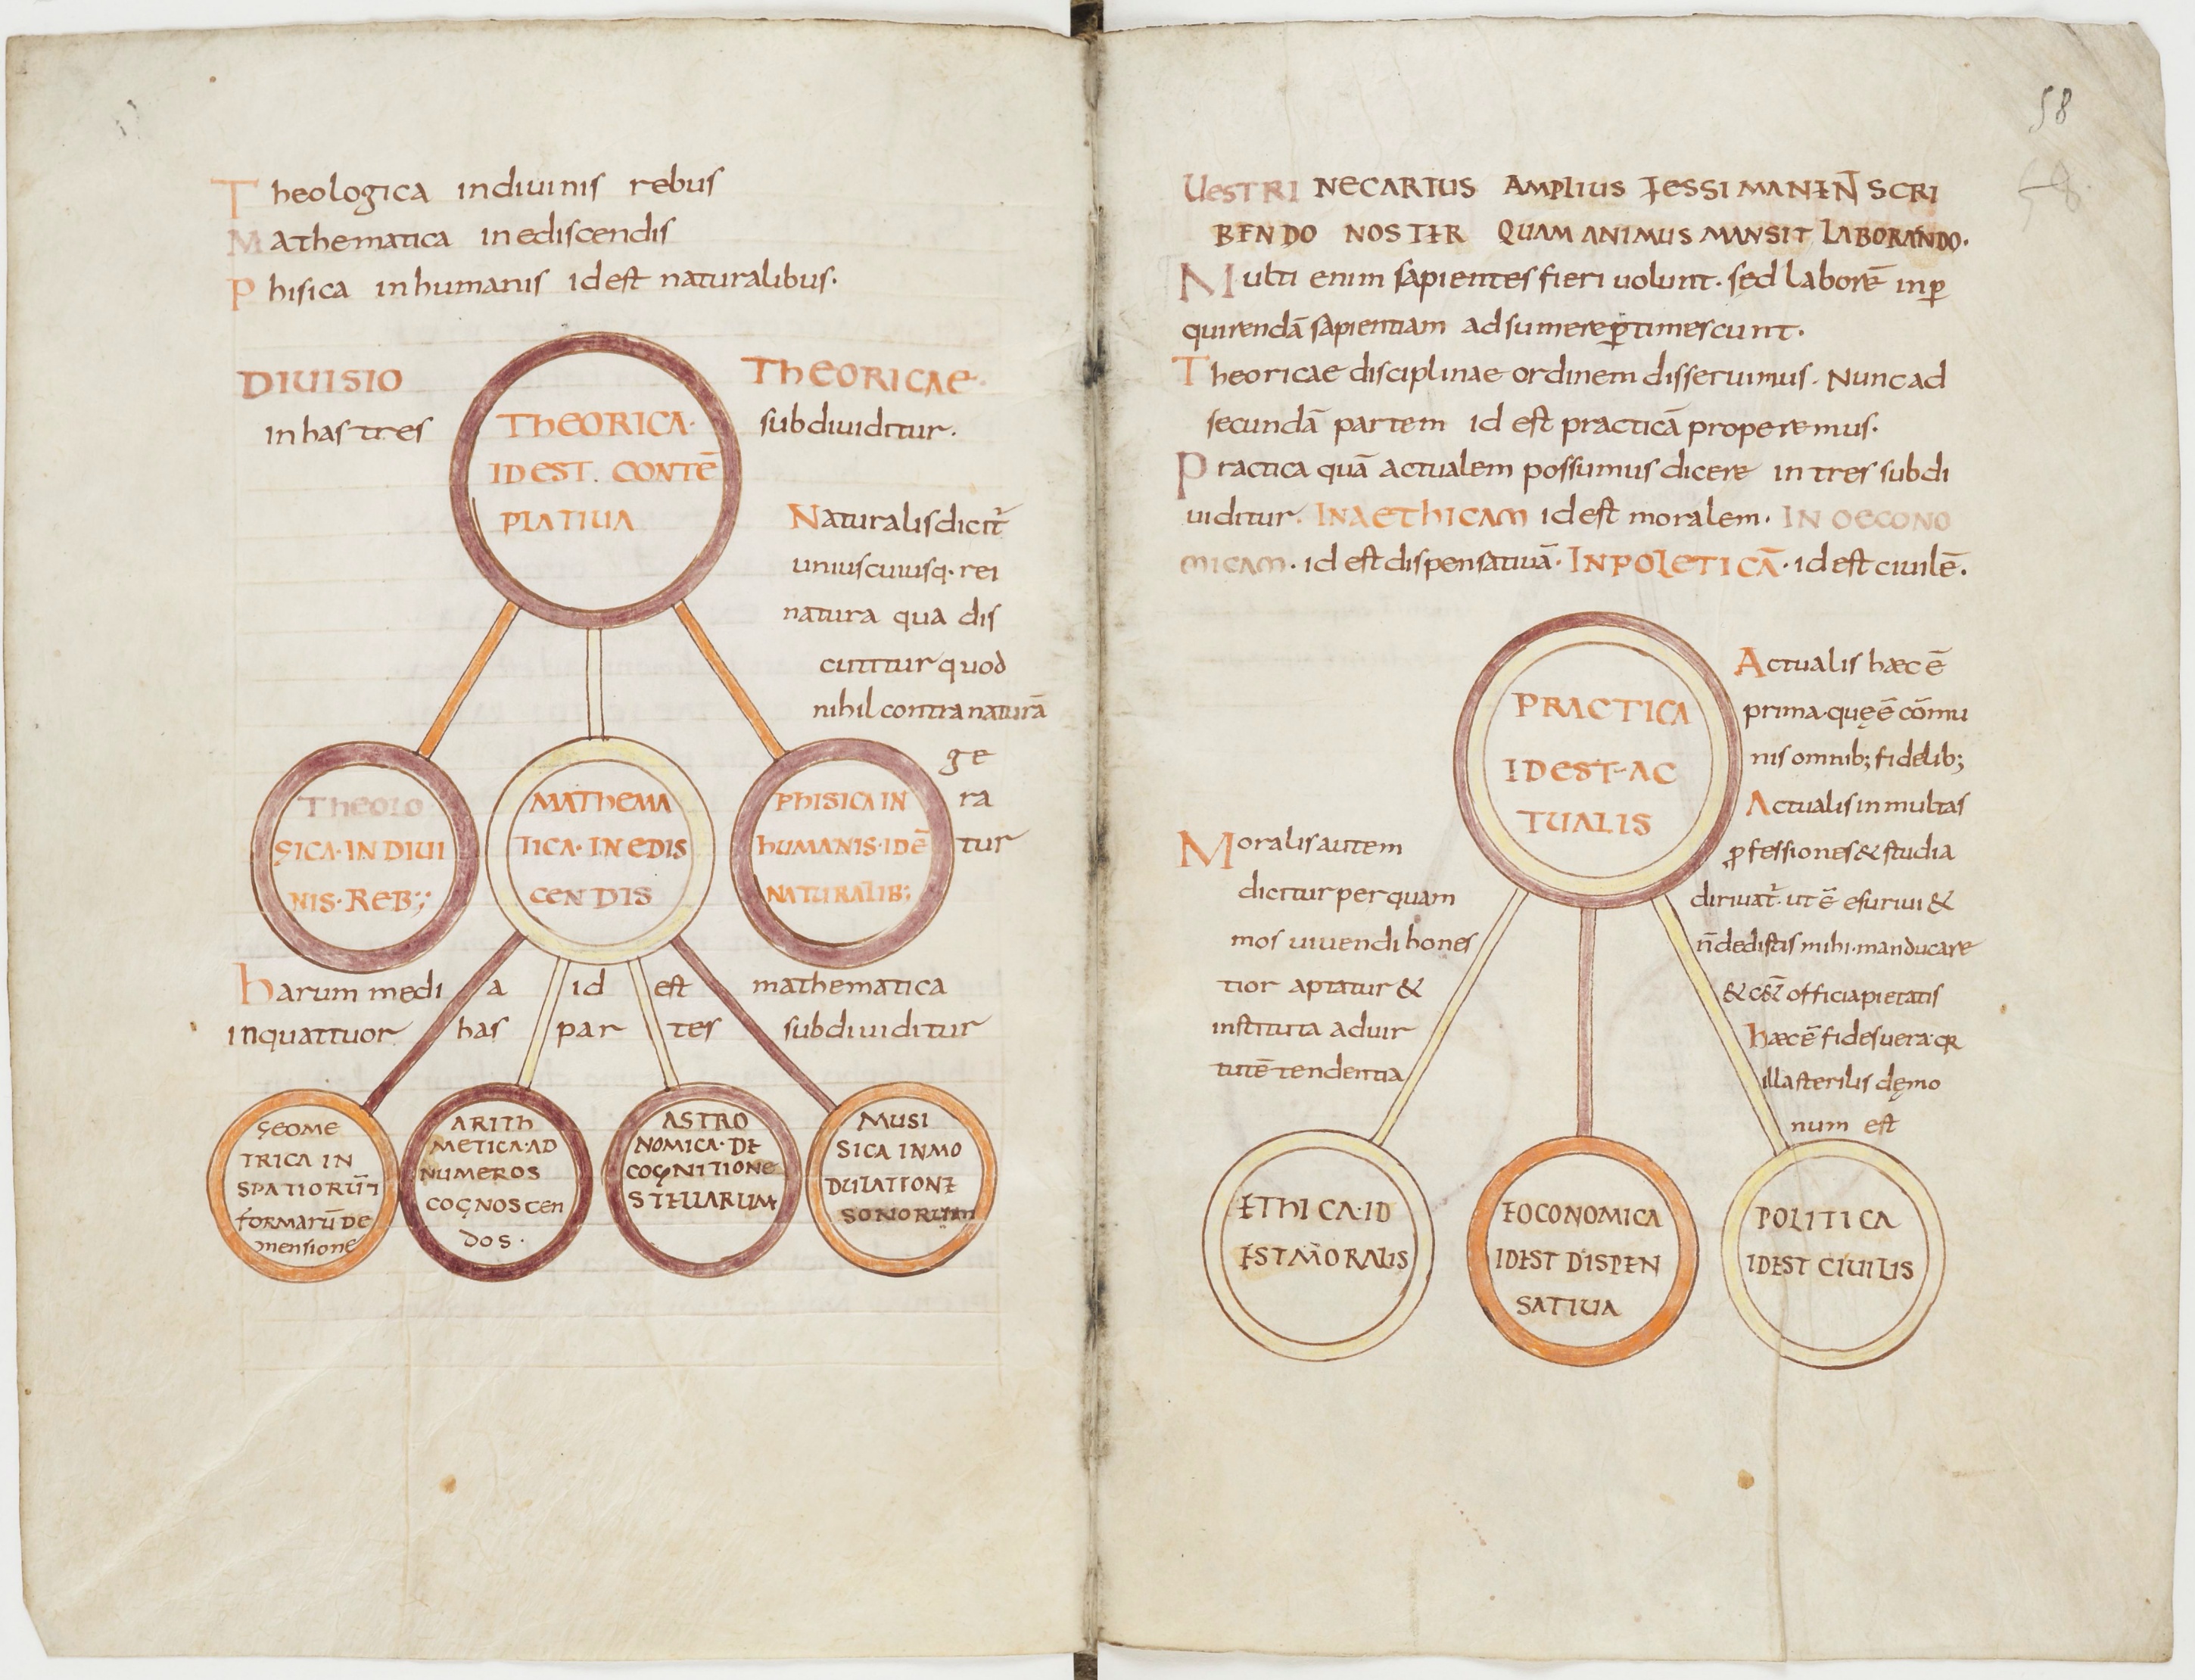 Theologica indiuinis rebus
Mathematica inediscendis
Phisica inhumanis idest naturalibus·
DIUISIO
inhas tres
THEORICA·
IDEST. CONTĒ
PLATIUA
THEORICAE·
subdiuiditur·
Naturalisdicit̄
uniuscuiusq· rei
natura qua dis
cutitur quod
nihil contranaturā
ge
ra
tur
THEOLO
GICA·INDIUI
NIS·REB;
MATHEMA
TICA·INEDIS
CENDIS
PHISICA IN
HUMANIS·IDĒ
NATURALIB;
harum medi a id est mathematica
inquattuor has par tes subdiuiditur
GEOME
TRICA IN
SPATIORŪ
FORMARŪ DE
mensione
ARITH
METICA·AD
NUMEROS
COGNOSCEN
DOS·
ASTRO
NOMICA·DE
COGNITIONE
STELLARUM
MUSI
SICA INMO
DULATIONE
SONORUM
58
58
UESTRI NECARIUS AMPLIUS FESSI MANEN̄ SCRI
BENDO NOSTER QUAM ANIMUS MANSIT LABORANDO·
Multi enim sapientes fieri uolunt· sed laborē inꝑ
quirendā sapientiam adsumereꝑtimescunt·
Theoricae disciplinae ordinem disseruimus· Nunc ad
secundā partem id est practicā properemus·
Practica quā actualem possumus dicere in tres subdi
uiditur· INAETHICAM id est moralem· IN OECONO
MICAM· id est dispensatiuā· INPOLETICĀ· id est ciuilē·
PRACTICA
IDEST·AC
TUALIS
Actualis haec ē
prima·quę ē cōmu
nis omnib; fidelib;
Actualis in multas
ꝓfessiones & studia
diriuat̄· ut ē esuriui &
n̄ dedistis mihi·manducare
& cet̄ officia pietatis
haec ē fides uera·qr
illa sterilis dęmo
num est
Moralis autem
dicitur per quam
mos uiuendi hones
tior aptatur &
instituta ad uir
tutē tendentia
ETHICA·ID
EST MORALIS
EOCONOMICA
IDEST DISPEN
SATIUA
POLITICA
IDEST CIUILIS